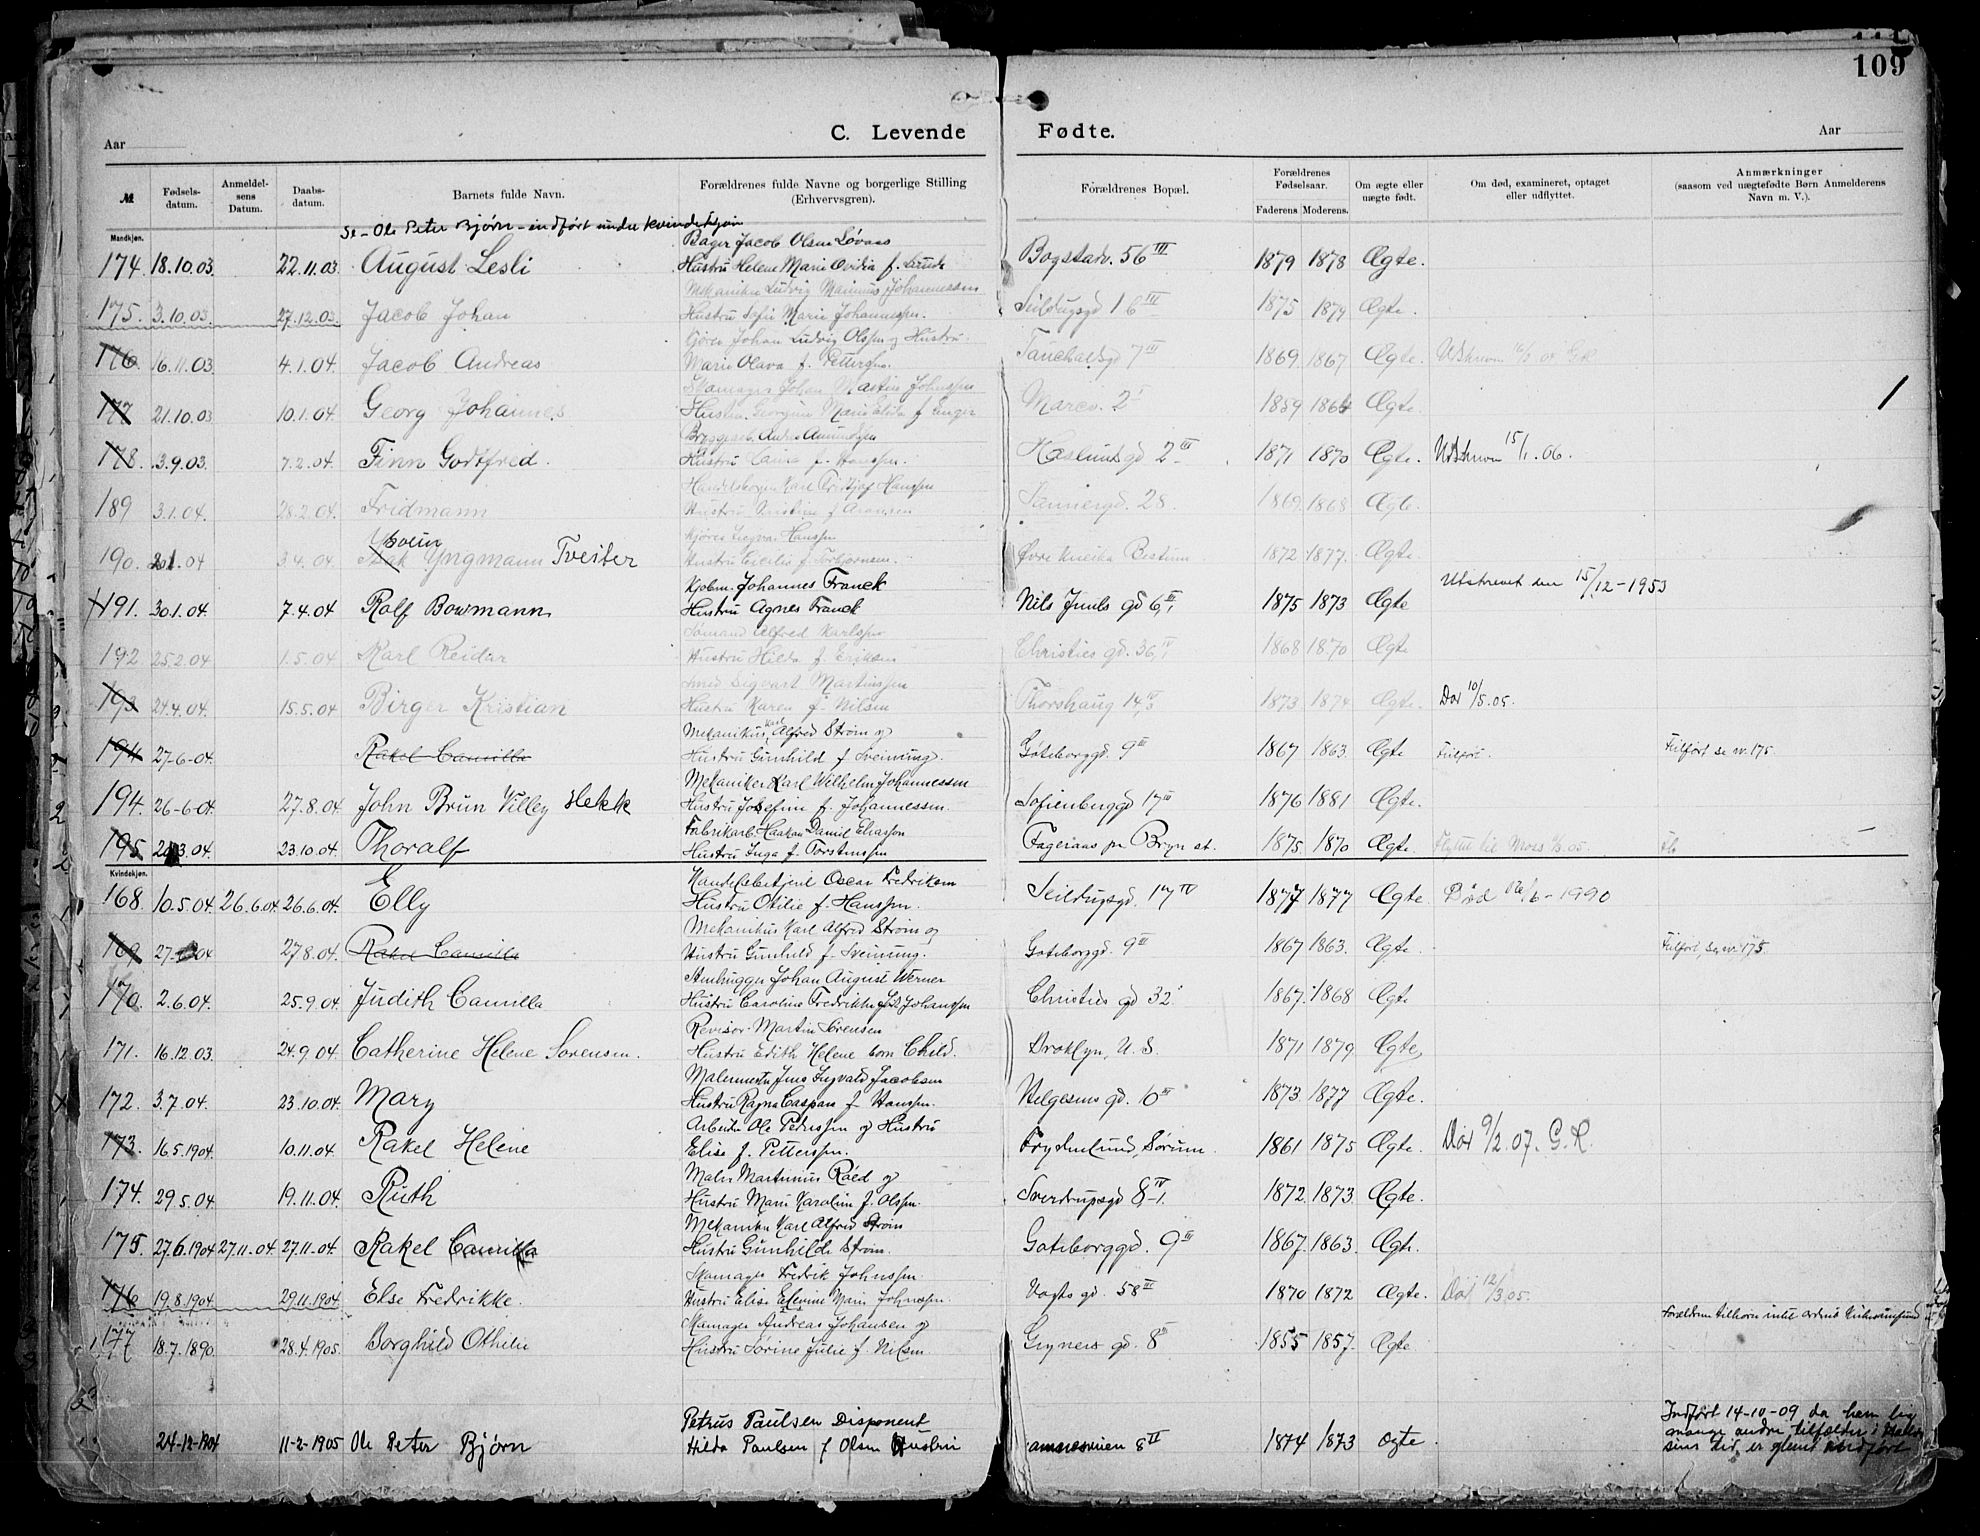 109
C. Levende Fødte.
Aar Aar
№ Fødsels-datum. Anmeldel-sens Datum. Daabs-datum. Barnets fulde Navn. Forældrenes fulde Navne og borgerlige Stilling (Erhvervsgren). Forældrenes Bopæl. Forældrenes Fødselsaar. Faderens Moderens. Om ægte eller uægte født. Om død, examineret, optaget eller udflyttet. Anmærkninger (saasom ved uægtefødte Børn Anmelderens Navn m. V.).
Se - Ole Peter Bjørn - indført under kvindekjøn
Mandkjøn.
Bager Jacob Olsen Løvaas
174. 18.10.03. 22.11.03. August Lesli Hustru Helene Marie Ovidia f. Bogstadv. 56 III 1879 1878 Ægte.
Mekaniker Ludvig Marinius Johannessen
175. 3.10.03. 27.12.03. Jacob Johan Hustru Sofie Marie Johannessen. Seildugsgd 16 III 1875 1879 Ægte.
Kjører Johan Ludvig Olsen og Hustru
176 16.11.03 4.1.04. Jacob Andreas Marie Olava f. Pettersen. 7 III 1869 1867 Ægte.
Skomager Johan Martin Johnssen
177 21.10.03 10.1.04. Georg Johannes Hustru Georgine Marie Elise f. Enger Marcv. 2 I 1859 1864 Ægte.
Bryggearb. Anders Amundsen
178. 3.9.03. 7.2.04. Finn Godtfred. Hustru f. Hanssen. Haslumsgd 2 III 1871 1870 Ægte. Utskreven 15/1.06.
Karl Fridtjof Hanssen
189 3.1.04. 28.2.04. Fridmann Hustru Kristine f. Aronsen 28. 1869 1868 Ægte.
Svein Kjører Hanssen
190. 04 3.4.04. Isak Yngmann Tveiter Hustru Cecilie f. Torbjørnsen. Øvre Bestum 1872 1877. Ægte
Kjøbm. Johannes Franck Utskrevet den 15/12-1953
191. 30.1.04. 7.4.04 Rolf Bowmann Hustru Agnes Franck Nils Juuls gd 6 III 1875 1873 Ægte
Sømand Alfred Karlssen
192 25.2.04 1.5.04 Karl Reidar Hustru Hilda f. Eriksen Christies gd. 36 IV 1868 1870 Ægte
Smed Sigvart Martinssen
193 24.4.04. 15.5.04 Birger Kristian Hustru Karen f. Nilsen Thorshaug 14 IV 1873 1874 Ægte. Død 10/5.05.
Mekanikus Karl Alfred Strøm og
194 27-6-04. Rakel Camilla Hustru Gunhild f Sveinung. Gøteborggd. 9 III 1867 1863. Ægte Feilført. Feilført se nr. 175.
Mekaniker Karl Wilhelm Johannessen
194. 26-6-04. 27.8.04. John Brun Villey Hekke Hustru Josefine f. Johannessen. Sofienberggd 17 III 1876 1881 Ægte.
Fabrikarb. Haakon Daniel Eliassen
195 3.04. 23.10.04. Thoralf Hustru Inga f. Torstensen Fageraas pr Bryn st. 1875. 1870 Ægte. Flyttet til Moss
Kvindekjøn.
Oscar Fredriksen
168. 10.5.04. 26.6.04 26.6.04. Elly Hustru Otilie f. Hanssen. Seildugsgd. 17 IV 1877 1877 Ægte Død 6-1990
Mekanikus Karl Alfred Strøm og
169 27-04 27.8.04. Rakel Camilla Hustru Gunhild f. Sveinung. Gøteborggd. 9 III 1867 1863. Ægte Feilført, Se nr 175.
Stenhugger Johan August Werner
170. 2.6.04. 25.9.04. Judith Camilla Hustru Caroline Fredrikke Johanssen Christies gd 32 1867. 1868 Ægte
Revisor Martin Sørensen
171. 16.12.03. 24.9.04. Catherine Helene Sorensen. Hustru Edith Helene born Child. Broklyn, U. S. 1871 1879 Ægte,
Malermester Jens Ingvald Jacobsen
172. 3.7.04. 23.10.04. Mary Hustru Ragna Caspara f. Hanssen. Helgesens gd. 10 III 1873. 1877 Ægte.
Arbeider Ole Pedersen og Hustru
173. 16.5.1904. 10.11.04. Rakel Helene Elise f. Petterssen. Frydenlund, Sørum. 1861 1875 Ægte. Død 9/2.07. G.R.
Maler Martinius Røed og
174. 29.5.04 19.11.04. Ruth Hustru Marie Karoline f. Olssen. Sverdrupsgd 8 IV 1. 1872. 1873. Ægte.
Mekaniker Karl Alfred Strøm
175. 27.6.1904 27.11.04. 27.11.04. Rakel Camilla Hustru Gunhilde Strøm. Gøteborggd. 9 III 1867. 1863. Ægte.
Skomager Fredrik Johnssen.
176 19.8.1904 29.11.1904 Else Fredrikke. Hustru Elise Marie Johnssen. Vogts gd. 58 III 1870 1872 Ægte. Død 12/3.05.
Skomager Andreas Johansen og
177 18.7.1890. 28.4.1905. Borghild Othelie Hustru Sørine Julie f. Nilsen. Gryners gd. 8 1855 1857. Ægte. Forældrene tilhører intet ordnet Kirkesamfund
Petrus Paulsen Disponent
24-12-1904 11-2-1905 Ole Peter Bjørn Hilda Paulsen f Olsen Hustru 8 II 1874 1873 Ægte Indført 14-10-09 da hen lig mange andre tilfælder i sin tid er glemt indført